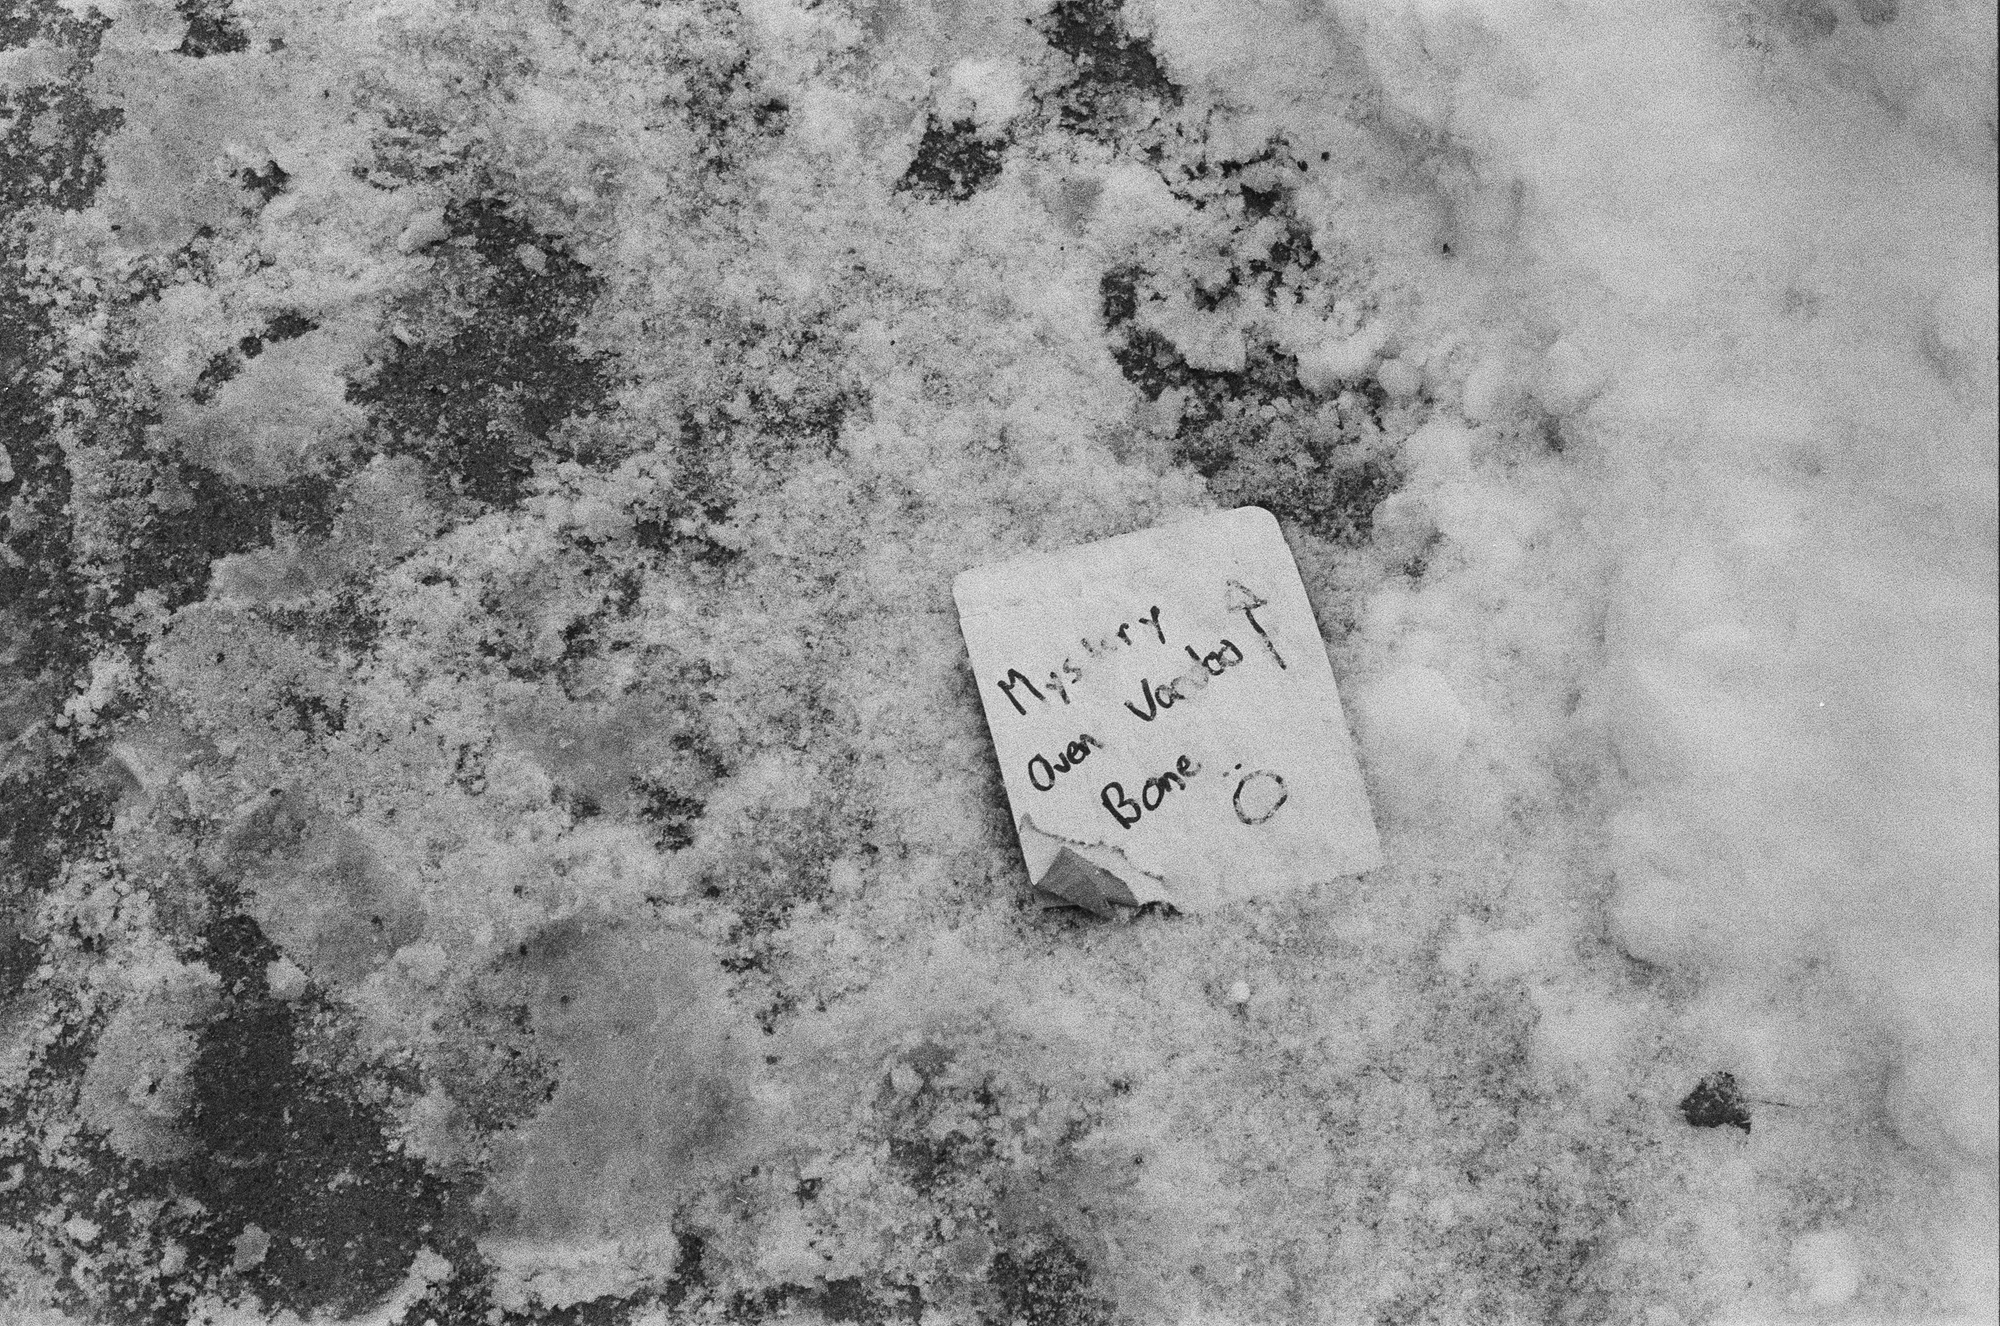 Mystery
Oven Voodoo
Bone